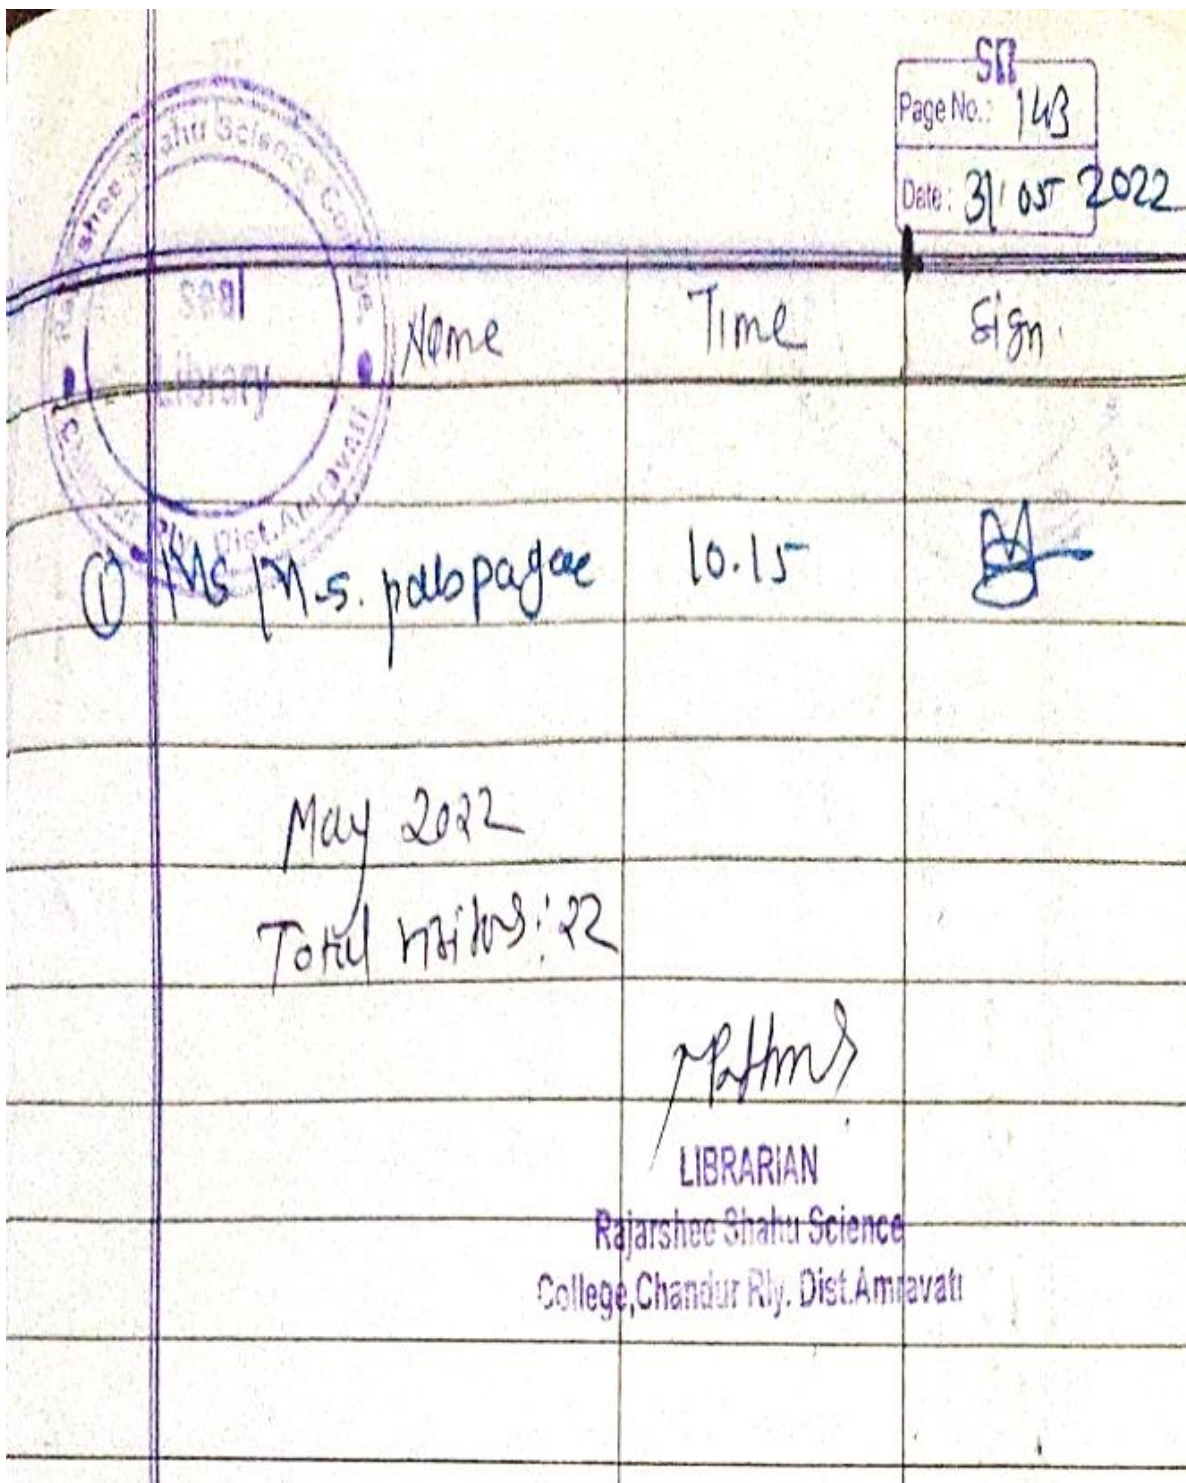 Page No.: 143
Date: 31 05 2022
Shahu Science College
Seal
Library
Dist. Amravati
Name Time Sign.
① Ms M.S. 10.15
May 2022
Total visitors: 22
LIBRARIAN
Rajarshee Shahu Science
College,Chandur Rly. Dist.Amravati